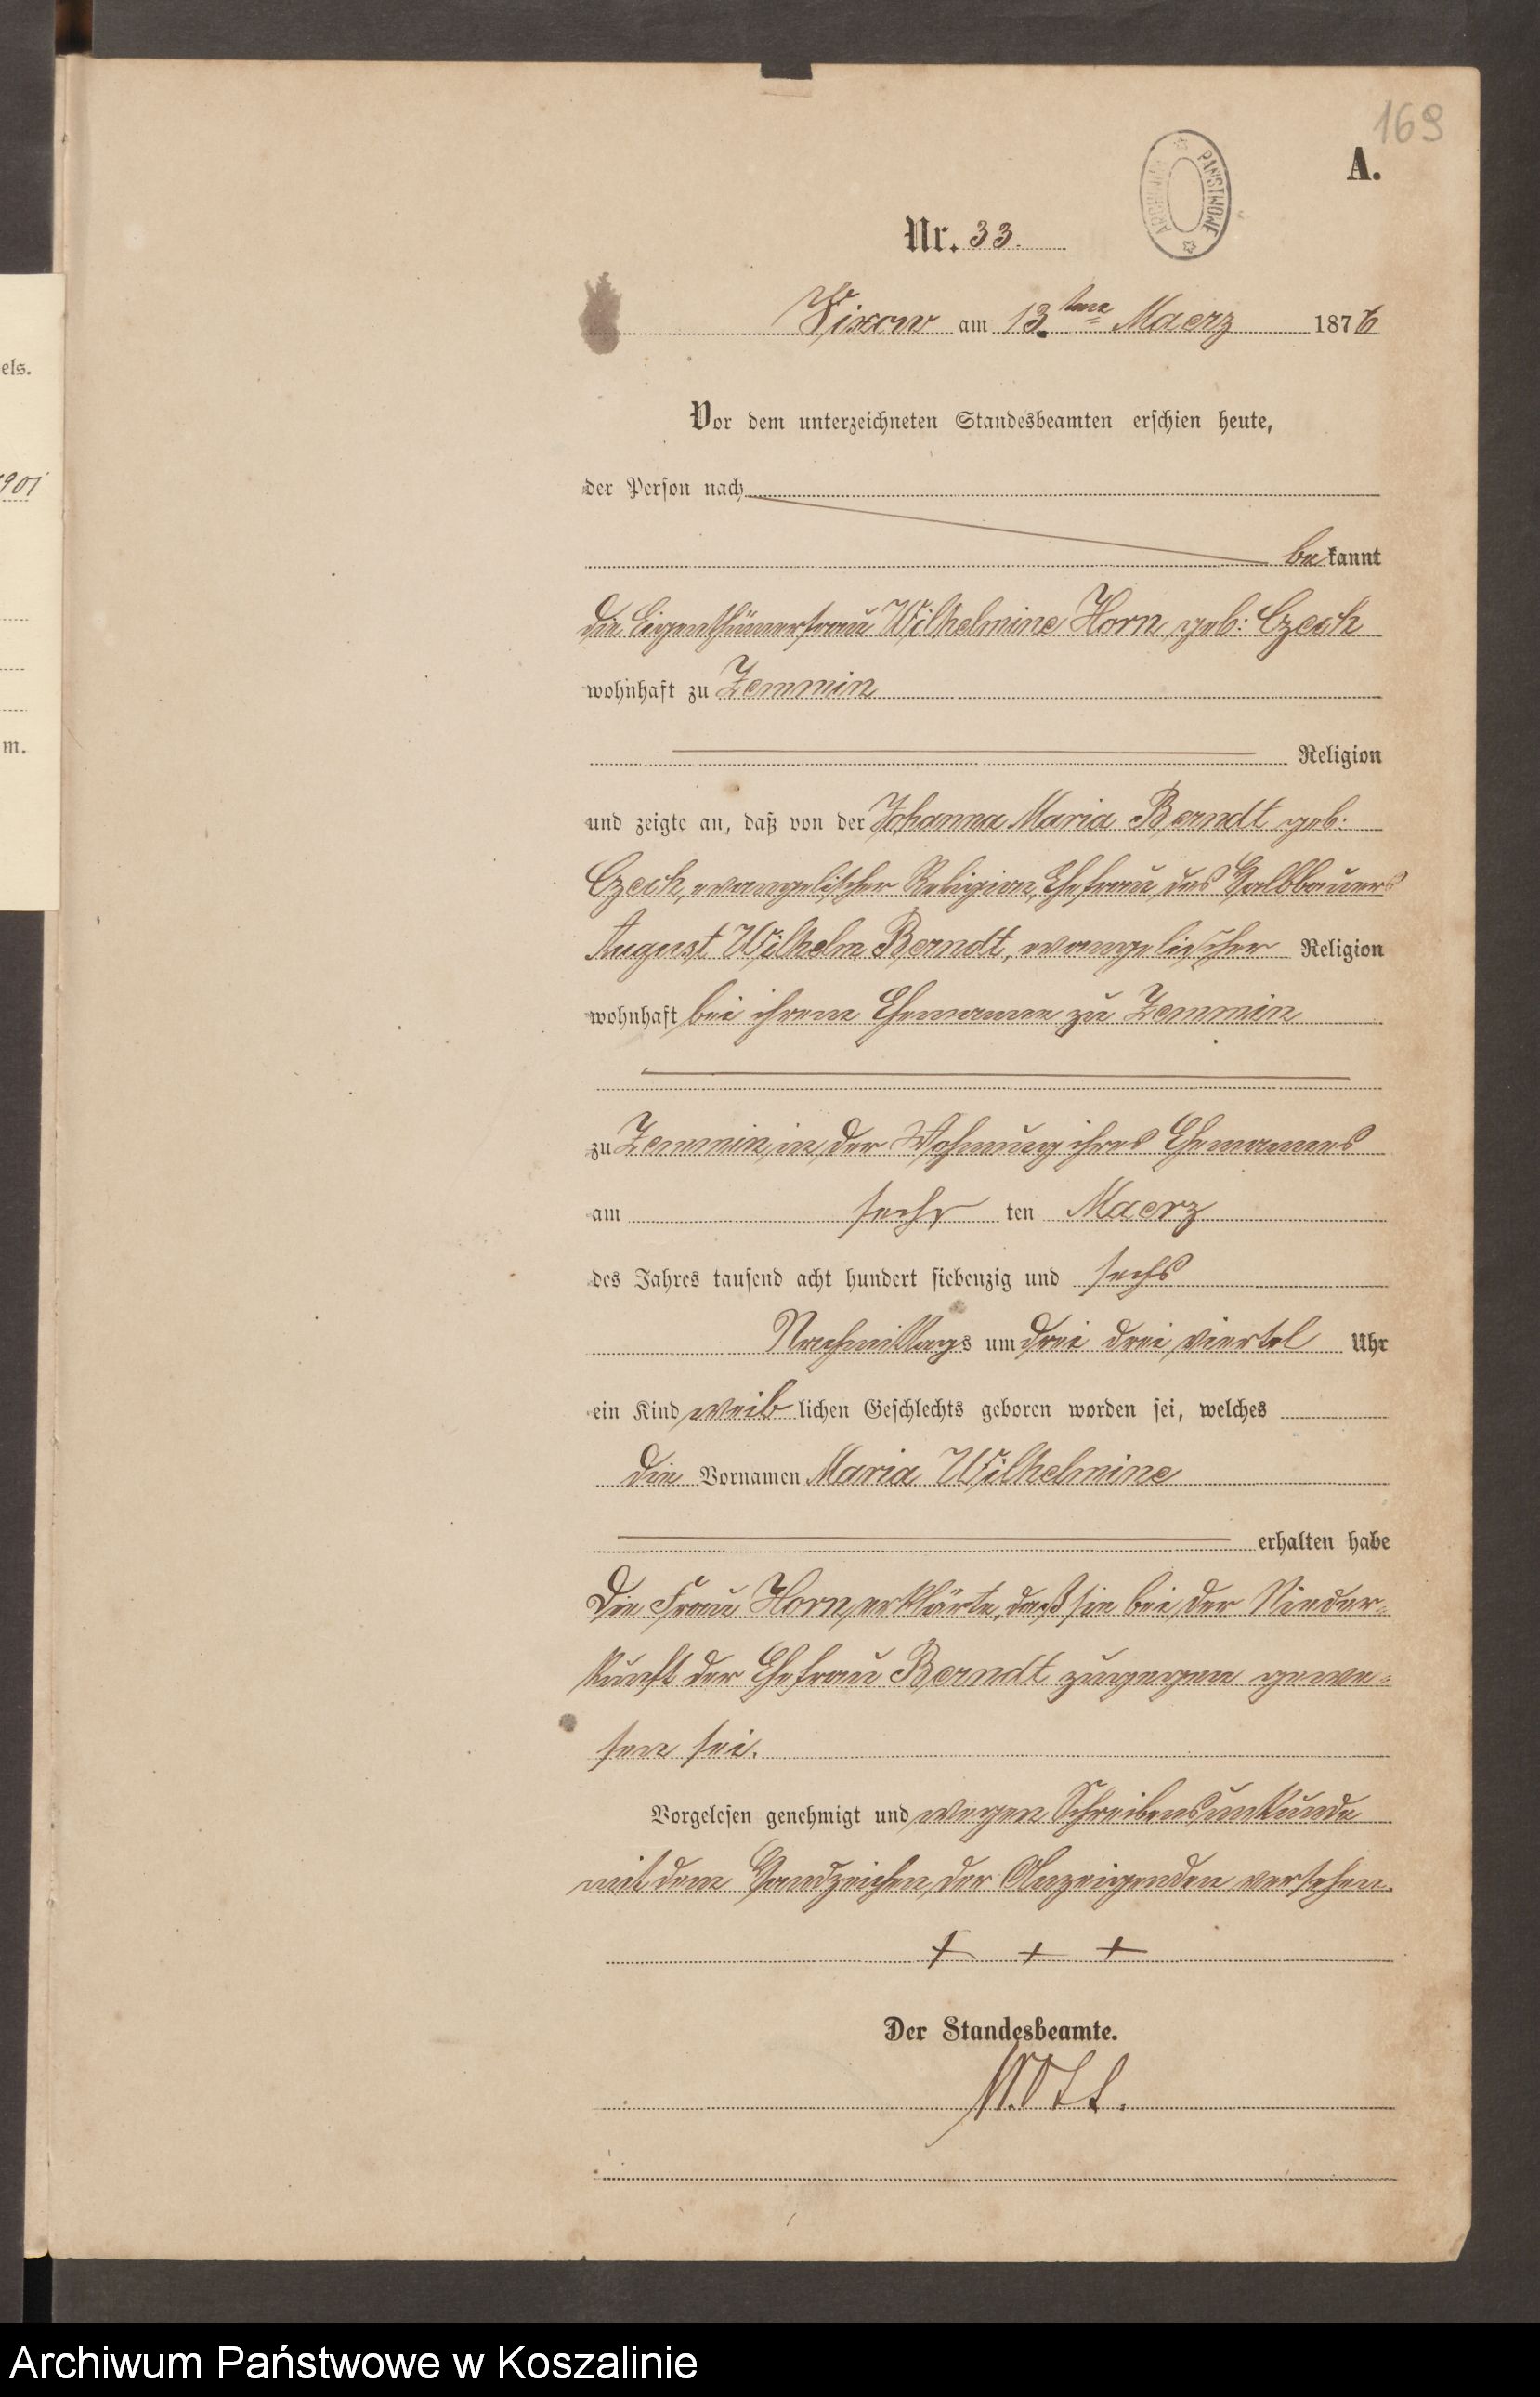 169
A.
ARCHIWUM PAŃSTWOWE
Nr. 33.
els.
Vixow am 13ten Maerz 1876
Vor dem unterzeichneten Standesbeamten erschien heute,
1901
der Person nach
bekannt
die Eigenthümerfrau Wilhelmine Horn geb: Czech
wohnhaft zu Zemmin
m.
Religion
und zeigte an, daß von der Johanna Maria Berndt geb:
Czech, evangelischer Religion, Ehefrau des Halbbauers
August Wilhelm Berndt, evangelischer Religion
wohnhaft bei ihrem Ehemanne zu Zemmin
zu Zemmin in der Wohnung ihres Ehemannes
am sechs ten Maerz
des Jahres tausend acht hundert siebenzig und sechs
Nachmittags um drei drei viertel Uhr
ein Kind weiblichen Geschlechts geboren worden sei, welches
die Vornamen Maria Wilhelmine
erhalten habe
Die Frau Horn erklärte, daß sie bei der Nieder-
kunft der Ehefrau Berndt zugegen gewe-
sen sei.
Vorgelesen genehmigt und wegen Schreibensunkunde
mit dem Handzeichen der Anzeigenden versehen.
+ + +
Der Standesbeamte.
Archiwum Państwowe w Koszalinie